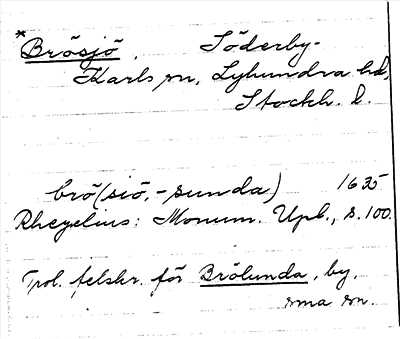 *Brösjö, Söderby-
Karls sn, Lyhundra hd,
Stockh. l.
brö(siö,-sunda) 1635
Rhezelius: Monum. Upl., s. 100.
Trol. felskr. för Brölunda, by,
sma sn.